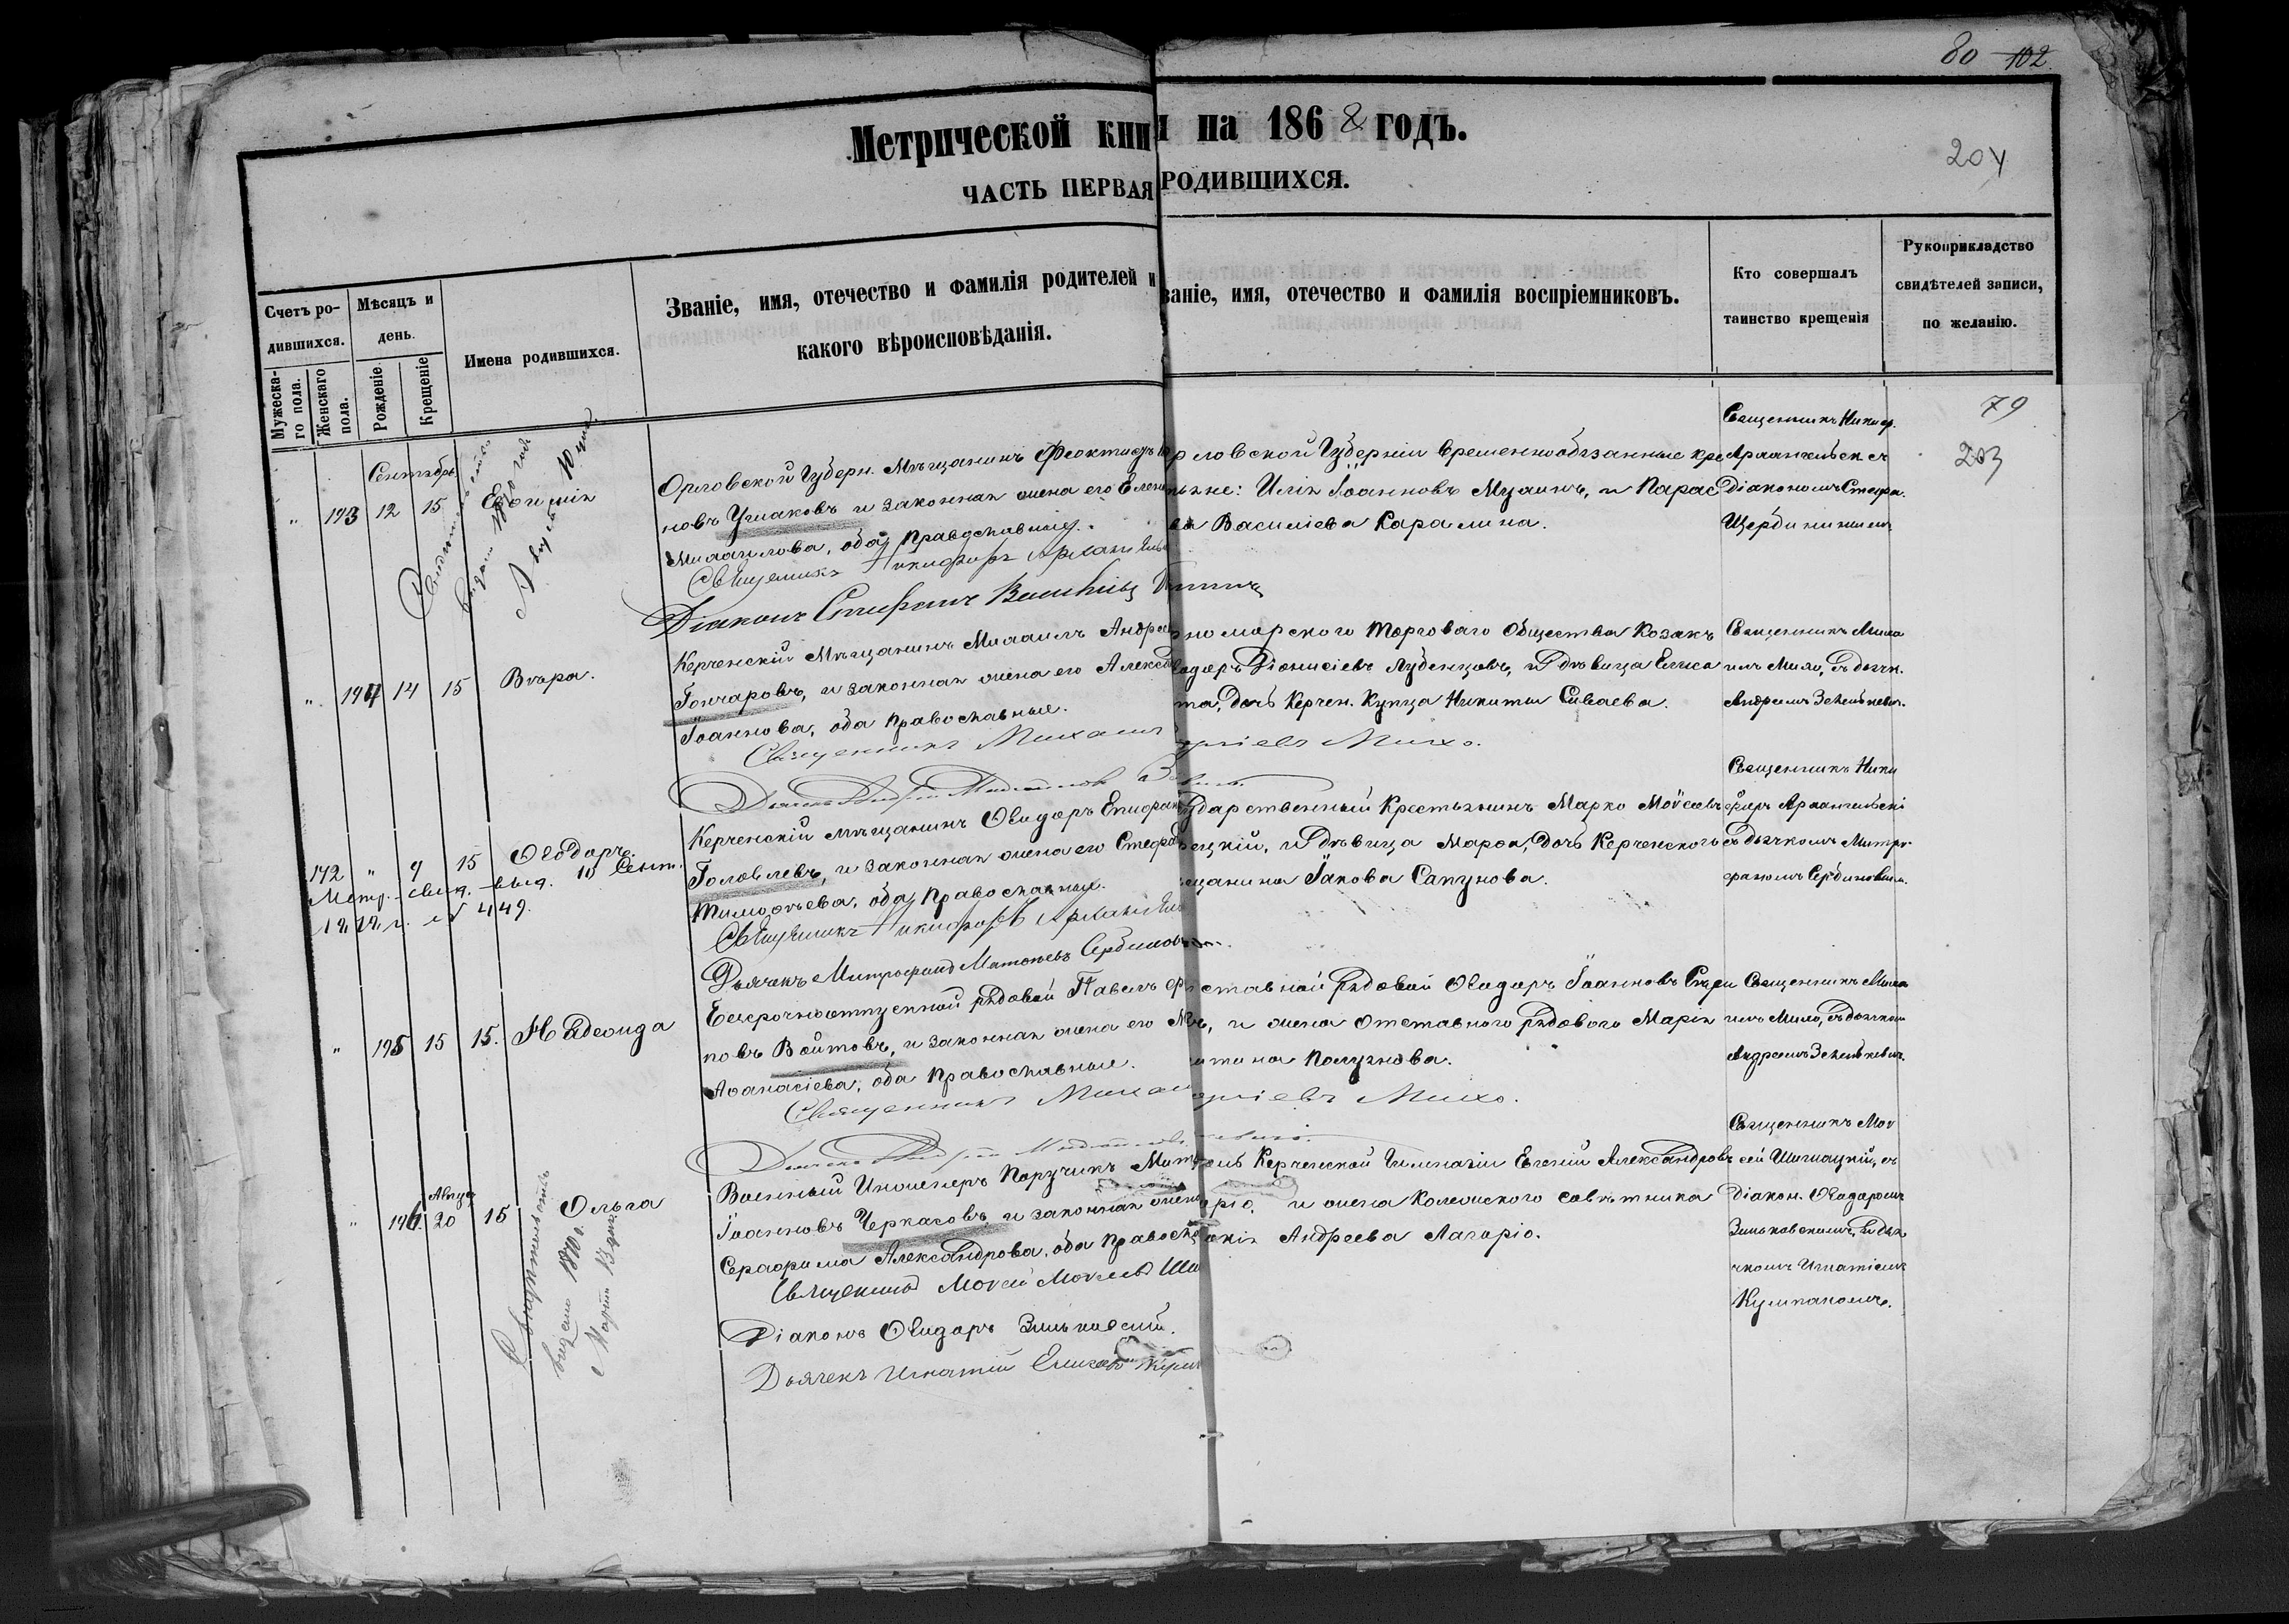 80 102.
Метрической кни и на 1868 годъ.
204
ЧАСТЬ ПЕРВАЯ РОДИВШИХСЯ.
Счетъ ро-
дившихся.
Мужеска-
го пола.
Женскаго
пола.
Мѣсяцъ и
день.
Рожденіе.
Крещеніе
Имена родившихся.
Званіе, имя, отечество и фамилія родителей и
какого вѣроисповѣданія.
ваніе, имя, отечество и фамилія воспріемниковъ.
Кто совершалъ
таинство крещенія
Рукоприкладство
свидѣтелей записи,
по желанію.
79
203
Сентябрь
" 193 12 15 Евѳимія
Орловской Губерн. Мѣщанинъ Феоктистъ
новъ Ушаковъ и законная жена его Елен
Михаилова, оба православные.
Священникъ Никифоръ Архангельс
Діаконъ Стефанъ Василіевъ
рловской Губерніи временнообязанные кре
тьяне: Илія Іоанновъ Музинъ, и Парас
ва Василіева Карамина.
Священникъ Никиф.
Архангельск съ
Діакономъ Стефа.
Щербининымъ
" 194 14 15 Вѣра.
Керченскій Мѣщанинъ Михаилъ Андрее
Гончаровъ, и законная жена его Алекса
Іоаннова, оба православные.
Священникъ Михаилъ ргіевъ Михо.
номорскаго Торговаго Общества Козакъ
еодоръ Діонисіевъ Лубенцовъ, и Дѣвица Елиса
та, Дочь Керчен. Купца Никиты Сиваева.
Священникъ Миха
илъ Михо, съ дьячк.
Андреемъ Зеленкевич.
142 " 9 15 Ѳеодоръ.
Метр. свид. выд. 10 Сент.
№ 449.
Керченскій мѣщанинъ Ѳеодоръ Епифан
Головлевъ, и законная жена его Стефа
Тимоѳѣева, оба православные.
Священникъ Никифоръ Архангель
Дьячекъ Митрофанъ Матѳеевъ Сербинов
ударственный Крестьянинъ Марко Моѵсеевъ
ецкій, и Дѣвица Марѳа, Дочь Керченскаго
ѣщанина Іакова Сапунова.
Священникъ Ники
форъ Архангельскі
съ дьячкомъ Митро
фаномъ Сербиновым.
" 195 15 15. Надежда
Безсрочноотпускной рядовой Павелъ Ф
повъ Войтовъ, и законная жена его М
Аѳанасіева, оба православные.
Священникъ Михаи ргіевъ Михо.
ставной рядовой Ѳеодоръ Іоанновъ
ъ, и жена отставного рядового Марія
Священникъ Миха
илъ Михо, съ дьячком
Андреемъ Зеленкевич.
" 196 Авгус 20 15 Ольга
Свидѣтельство
выдано 1870 г.
Марта 13 дня
Военный Инженеръ Поручикъ Мит
Іоанновъ Черкасовъ, и законная жен
Серафима Александрова, оба правос
Священникъ Моѵсей Моѵсеевъ Ши
Діаконъ Ѳеодоръ Зиньковскій.
Дьячекъ Игнатій Елисеевъ Кул
ель Керченской Гимназіи Евгеній Александровъ
ріо, и жена Колежскаго совѣтника
Андреева Лагоріо.
Священникъ Моѵ
сей Шигнацкій, съ
Діакон. Ѳеодоромъ
Зиньковскимъ, и дья
чкомъ Игнатіемъ
Кулпакомъ.